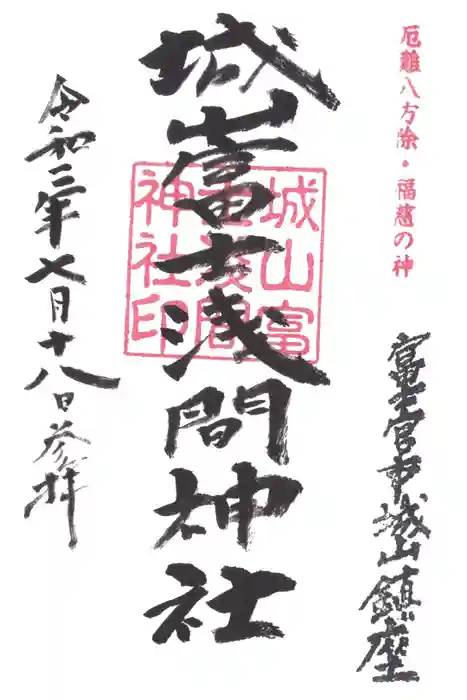 厄難八方除・福慈の神
富士宮市城山鎮座
城山富士浅間神社
城山富
士浅間
神社印
令和三年七月十八日参拝